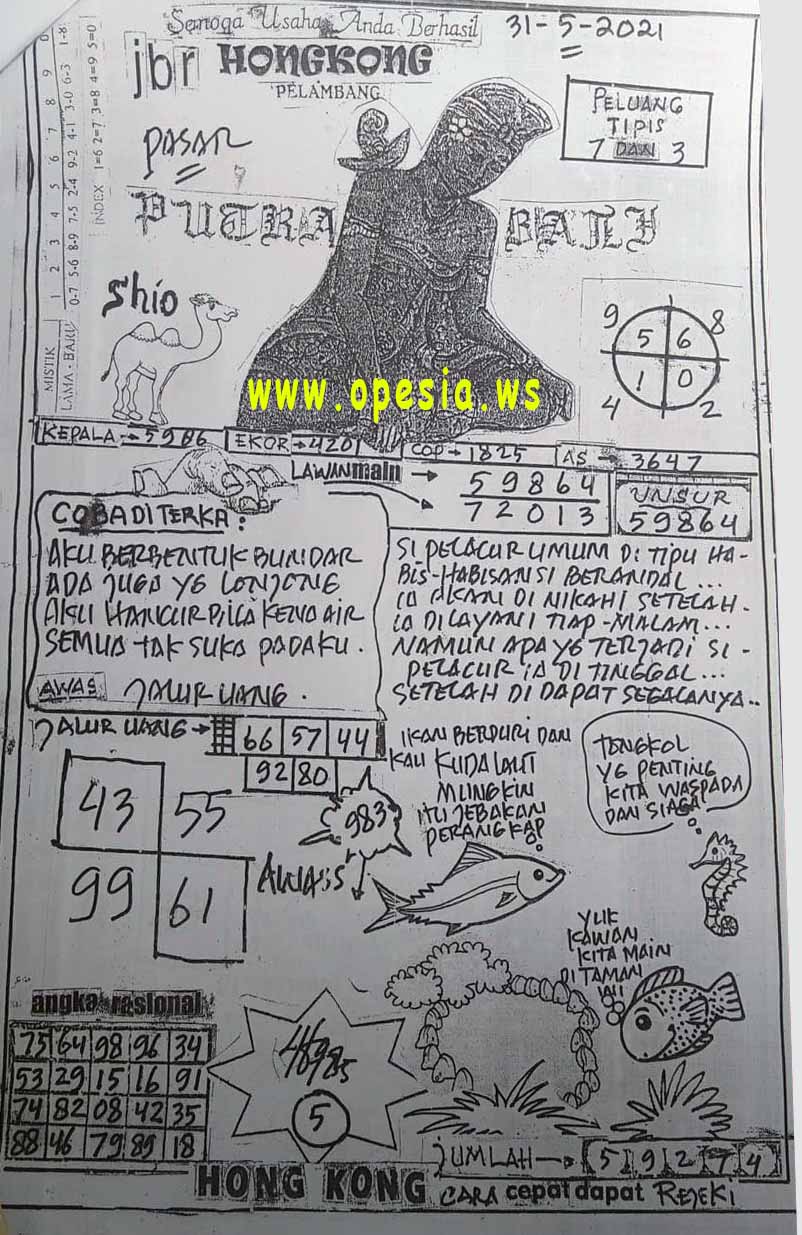 Semoga Usaha Anda Berhasil
31-5-2021
jbr HONGKONG
PELAMBANG
PASAR
PUTRA BALI
PELUANG
TIPIS
7 DAN 3
MISTIK
LAMA - BARU
1 2 3 4 5 6 7 8 9 0
0-7 5-6 8-9 7-5 2-4 9-2 4-1 3-0 6-3 1-8
INDEX 1=6 2=7 3=8 4=9 5=0
Shio
9 8
5 6
1 0
4 2
www.opesia.ws
KEPALA → 5986
EKOR → 4201
COP → 1825
AS → 3647
LAWAN main → 59864
72013
UNSUR
59864
COBA DITERKA :
AKU BERBENTUK BUNDAR
ADA JUGA YG LONJONG
AKU HANCUR BILA KENA AIR
SEMUA TAK SUKA PADAKU.
AWAS JALUR UANG.
SI PELACUR UMUM DI TIPU HA-
BIS-HABISAN SI BERANDAL...
IA AKAN DI NIKAHI SETELAH.
IA DILAYANI TIAP-MALAM...
NAMUN APA YG TERJADI SI -
PELACUR IA DI TINGGAL...
SETELAH DI DAPAT SEGALANYA..
JALUR UANG → 66 57 44
92 80
43 55
99 61
983
AWAS
IKAN BERDURI DAN
KAU KUDA LAUT
MUNGKIN
ITU JEBAKAN
PERANGKAP
TONGKOL
YG PENTING
KITA WASPADA
DAN SIAGA
YUK
KAWAN
KITA MAIN
DI TAMAN
angka rasional
75 64 98 96 34
53 29 15 16 91
74 82 08 42 35
88 46 79 89 18
5
JUMLAH → 5 9 2 7 4
HONG KONG
CARA cepat dapat REJEKI